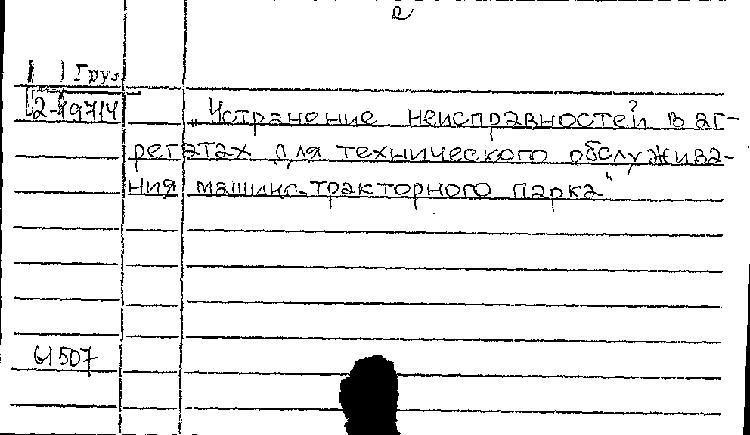 2
Груз
2-19714
„Устранение неисправностей в аг-
регатах для технического обслужива-
ния машинс.тракторного парка"
61507